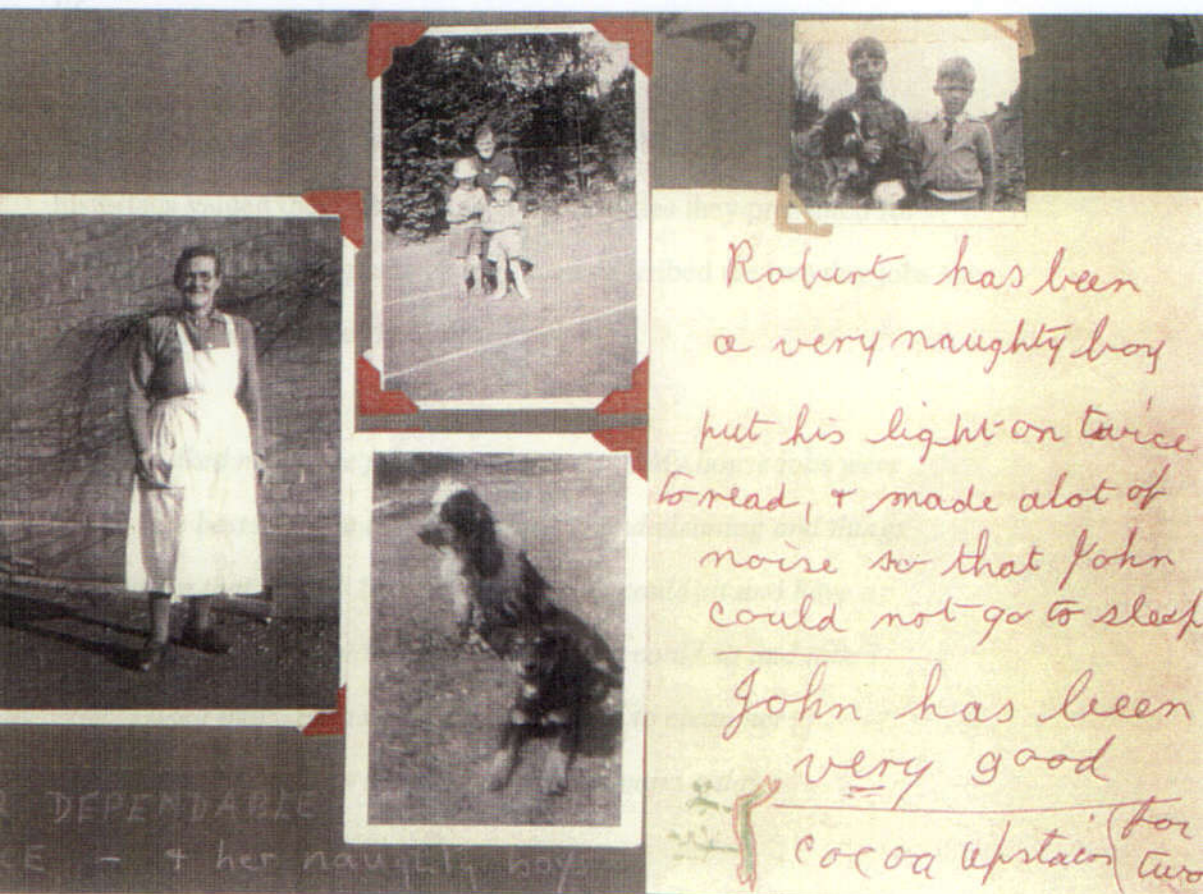 Robert has been
a very naughty boy
put his light on twice
to read, & made alot of
noise so that John
could not go to sleep
John has been
very good
cocoa upstairs (for
two
R DEPENDABLE
CE - & her naughty boys